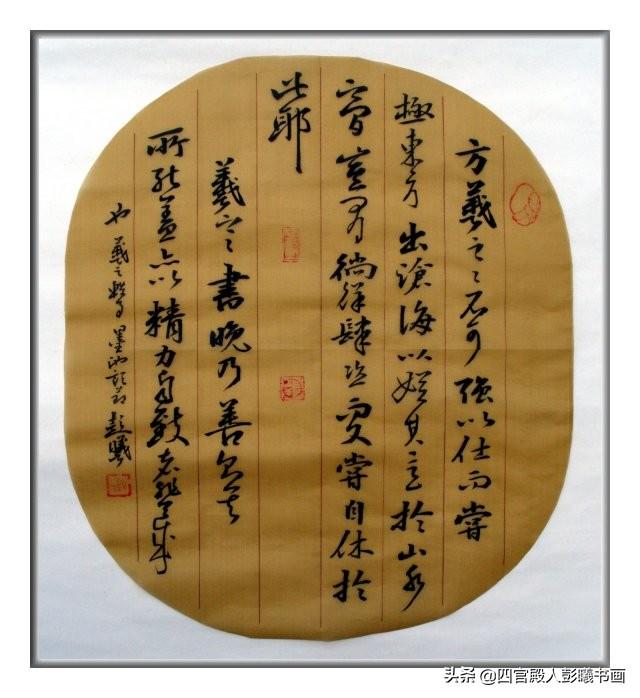 方羲之之不可強以仕而嘗
極東方出滄海以娱其意於山水
之間豈有徜徉肆恣而又嘗自休於
此耶
羲之之書晚乃善則其
所能盖亦以精力自致者非天成
也 羲之 墨池記 彭曦
头条 @四官殿人彭曦书画